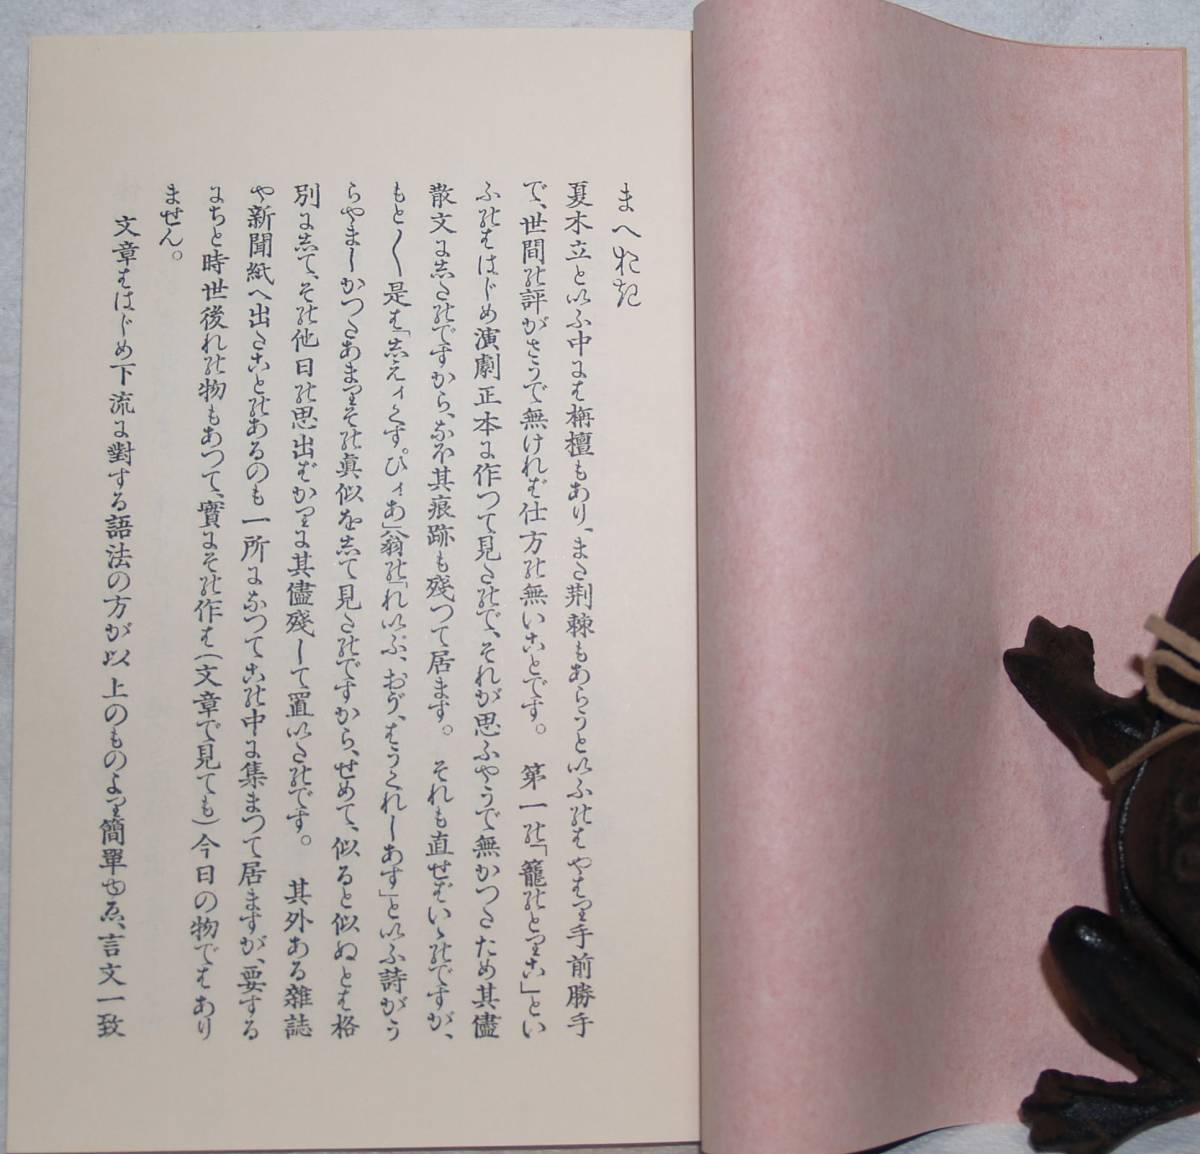 まへおき
夏木立といふ中には栴檀もあり、また荆棘もあらうといふのはやはり手前勝手
で、世間の評がさうで無ければ仕方の無いことです。　第一の「籠のとりこ」とい
ふのははじめ演劇正本に作つて見たので、それが思ふやうで無かつたため其儘
散文にしたのですから、なほ其痕跡も殘つて居ます。　それも直せばいゝのですが、
もと〱是は「しえィくす。ぴィあ」翁の「れいぷ、おゔ、はうくれしあす」といふ詩がう
らやましかつたあまりその眞似をして見たのですから、せめて、似ると似ぬとは格
別にして、その他日の思出ばかりに其儘殘して置いたのです。　其外ある雜誌
や新聞紙へ出たことのあるのも一所になつてこの中に集まつて居ますが、要する
にちと時世後れの物もあつて、實にその作は(文章で見ても)今日の物ではあり
ません。
文章ははじめ下流に對する語法の方が以上のものより簡單ゆゑ、言文一致